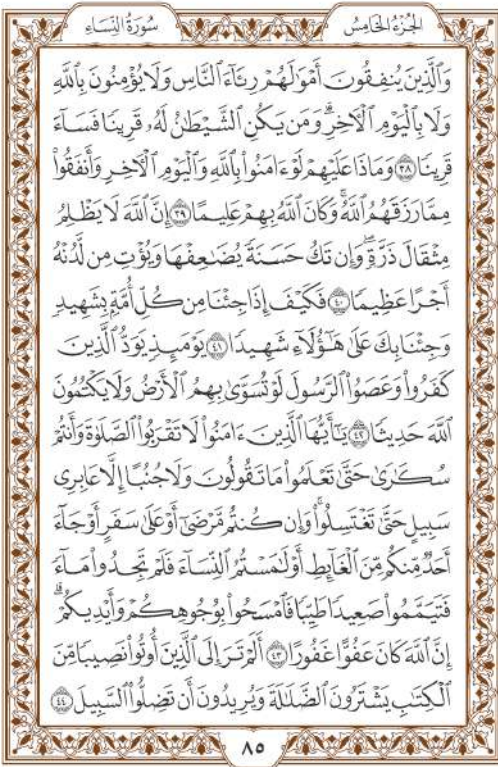 الجُزْءُ الخَامِسُ
سُورَةُ النِّسَاءِ
وَٱلَّذِينَ يُنفِقُونَ أَمْوَٰلَهُمْ رِئَآءَ ٱلنَّاسِ وَلَا يُؤْمِنُونَ بِٱللَّهِ
وَلَا بِٱلْيَوْمِ ٱلْأٓخِرِۗ وَمَن يَكُنِ ٱلشَّيْطَٰنُ لَهُۥ قَرِينًا فَسَآءَ
قَرِينًا ٣٨ وَمَاذَا عَلَيْهِمْ لَوْ ءَامَنُوا۟ بِٱللَّهِ وَٱلْيَوْمِ ٱلْأٓخِرِ وَأَنفَقُوا۟
مِمَّا رَزَقَهُمُ ٱللَّهُۚ وَكَانَ ٱللَّهُ بِهِمْ عَلِيمًا ٣٩ إِنَّ ٱللَّهَ لَا يَظْلِمُ
مِثْقَالَ ذَرَّةٍۖ وَإِن تَكُ حَسَنَةً يُضَٰعِفْهَا وَيُؤْتِ مِن لَّدُنْهُ
أَجْرًا عَظِيمًا ٤٠ فَكَيْفَ إِذَا جِئْنَا مِن كُلِّ أُمَّةٍۭ بِشَهِيدٍ
وَجِئْنَا بِكَ عَلَىٰ هَٰٓؤُلَآءِ شَهِيدًا ٤١ يَوْمَئِذٍ يَوَدُّ ٱلَّذِينَ
كَفَرُوا۟ وَعَصَوُا۟ ٱلرَّسُولَ لَوْ تُسَوَّىٰ بِهِمُ ٱلْأَرْضُ وَلَا يَكْتُمُونَ
ٱللَّهَ حَدِيثًا ٤٢ يَٰٓأَيُّهَا ٱلَّذِينَ ءَامَنُوا۟ لَا تَقْرَبُوا۟ ٱلصَّلَوٰةَ وَأَنتُمْ
سُكَٰرَىٰ حَتَّىٰ تَعْلَمُوا۟ مَا تَقُولُونَ وَلَا جُنُبًا إِلَّا عَابِرِى
سَبِيلٍ حَتَّىٰ تَغْتَسِلُوا۟ۚ وَإِن كُنتُم مَّرْضَىٰٓ أَوْ عَلَىٰ سَفَرٍ أَوْ جَآءَ
أَحَدٌ مِّنكُم مِّنَ ٱلْغَآئِطِ أَوْ لَٰمَسْتُمُ ٱلنِّسَآءَ فَلَمْ تَجِدُوا۟ مَآءً
فَتَيَمَّمُوا۟ صَعِيدًا طَيِّبًا فَٱمْسَحُوا۟ بِوُجُوهِكُمْ وَأَيْدِيكُمْۗ
إِنَّ ٱللَّهَ كَانَ عَفُوًّا غَفُورًا ٤٣ أَلَمْ تَرَ إِلَى ٱلَّذِينَ أُوتُوا۟ نَصِيبًا مِّنَ
ٱلْكِتَٰبِ يَشْتَرُونَ ٱلضَّلَٰلَةَ وَيُرِيدُونَ أَن تَضِلُّوا۟ ٱلسَّبِيلَ ٤٤
٨٥